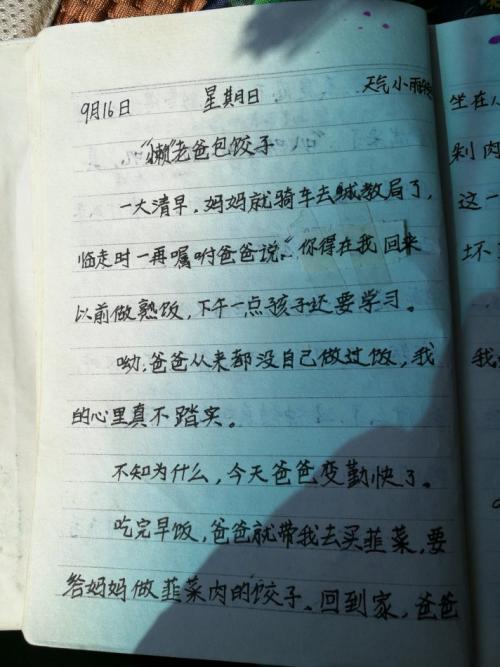 9月16日 星期日 天气小雨
"懒"老爸包饺子
一大清早,妈妈就骑车去城教局了,
临走时一再嘱咐爸爸说:"你得在我回来
以前做熟饭,下午一点孩子还要学习。
呦,爸爸从来都没自己做过饭,我
的心里真不踏实。
不知为什么,今天爸爸变勤快了。
吃完早饭,爸爸就带我去买韭菜,要
给妈妈做韭菜肉的饺子。回到家,爸爸
坐在
剁肉
这一
坏
我